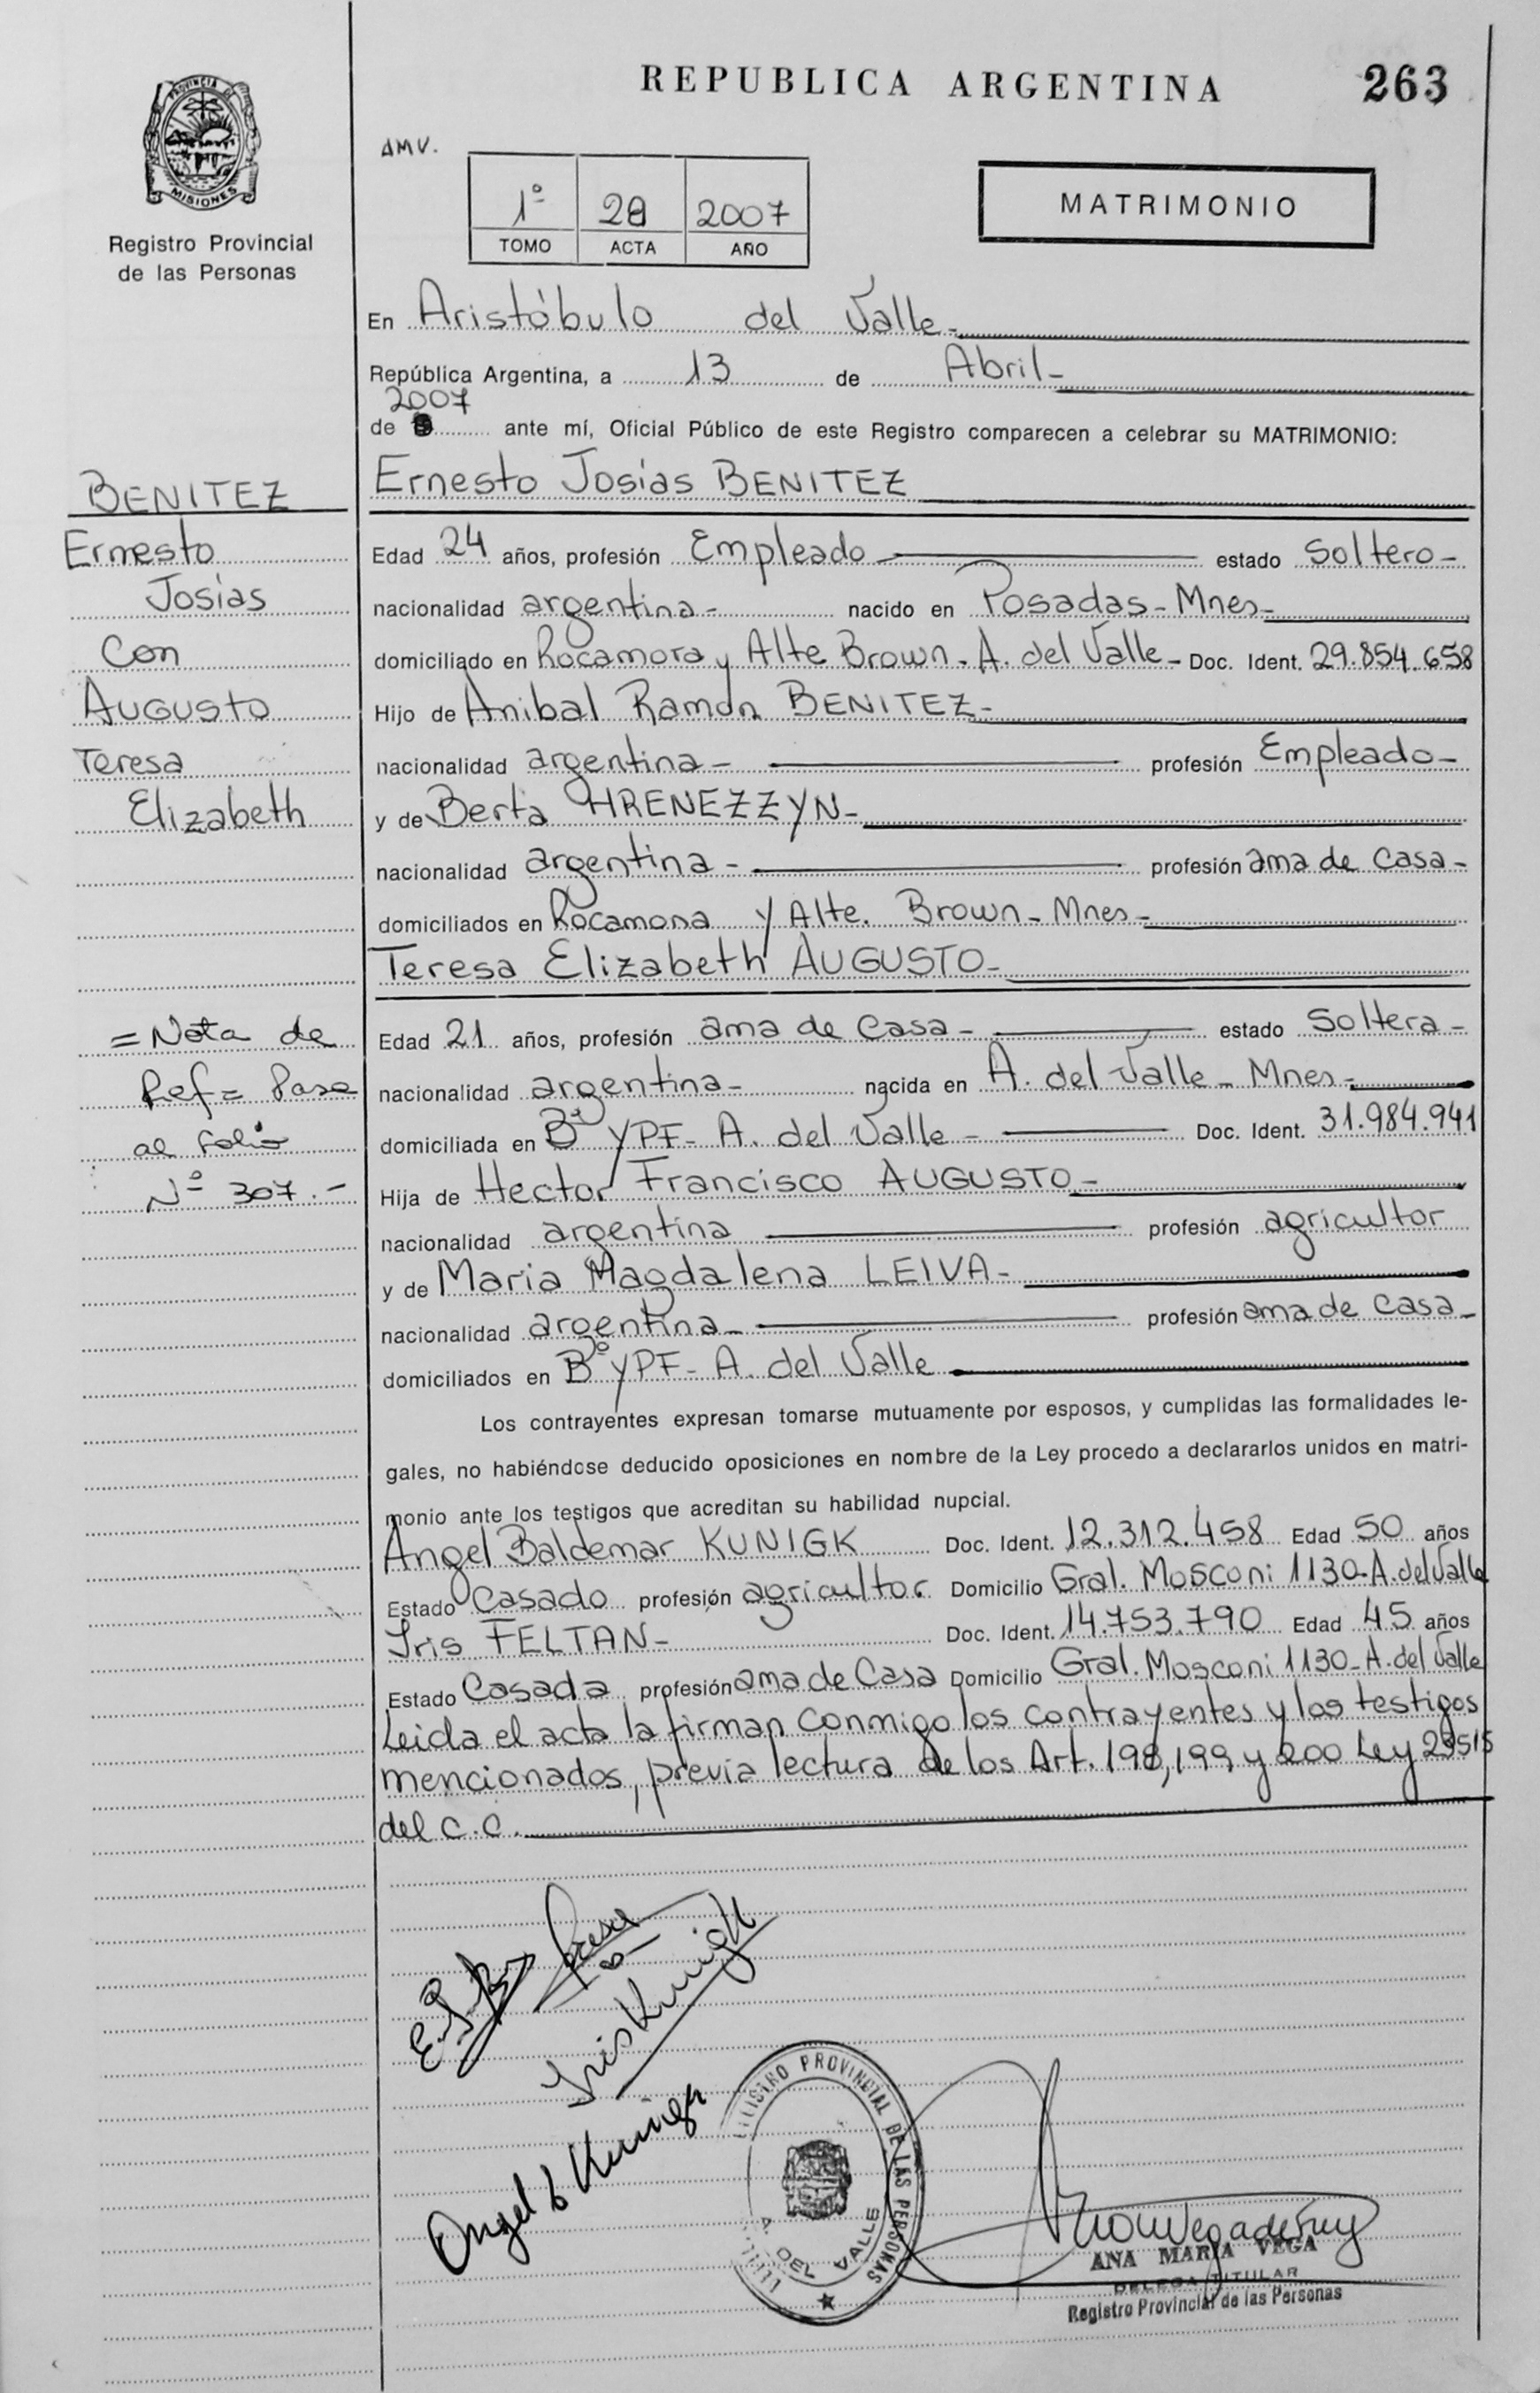 REPUBLICA ARGENTINA 263
PROVINCIA DE
MISIONES
Registro Provincial
de las Personas
AMV.
1º 28 2007
TOMO ACTA AÑO
MATRIMONIO
En Aristóbulo del Valle-
República Argentina, a 13 de Abril-
2007
de ante mí, Oficial Público de este Registro comparecen a celebrar su MATRIMONIO:
Ernesto Josías BENITEZ
Edad 24 años, profesión Empleado estado Soltero-
nacionalidad argentina- nacido en Posadas-Mnes-
domiciliado en Rocamora y Alte Brown-A. del Valle- Doc. Ident. 29.854.658
Hijo de Anibal Ramon BENITEZ-
nacionalidad argentina- profesión Empleado-
y de Berta HRENEZZYN-
nacionalidad argentina- profesión ama de casa-
domiciliados en Rocamora y Alte. Brown-Mnes-
Teresa Elizabeth AUGUSTO-
Edad 21 años, profesión ama de casa- estado Soltera-
nacionalidad argentina- nacida en A. del Valle-Mnes-
domiciliada en Bº YPF-A. del Valle- Doc. Ident. 31.984.941
Hija de Hector Francisco AUGUSTO-
nacionalidad argentina profesión agricultor
y de Maria Magdalena LEIVA-
nacionalidad argentina- profesión ama de casa-
domiciliados en Bº YPF-A. del Valle
Los contrayentes expresan tomarse mutuamente por esposos, y cumplidas las formalidades le-
gales, no habiéndose deducido oposiciones en nombre de la Ley procedo a declararlos unidos en matri-
monio ante los testigos que acreditan su habilidad nupcial.
Angel Baldemar KUNIGK Doc. Ident. 12.312.458 Edad 50 años
Estado Casado profesión agricultor Domicilio Gral. Mosconi 1130-A. del Valle
Iris FELTAN- Doc. Ident. 14.753.790 Edad 45 años
Estado Casada profesión ama de Casa Domicilio Gral. Mosconi 1130-A. del Valle
Leida el acta la firman conmigo los contrayentes y los testigos
mencionados, previa lectura de los Art. 198, 199 y 200 Ley 23515
del C.C.
BENITEZ
Ernesto
Josías
Con
AUGUSTO
Teresa
Elizabeth
= Nota de
Ref = Pase
al folio
Nº 307.-
Iris Kunigk
Angel b Kunigk
REGISTRO PROVINCIAL DE LAS PERSONAS
A. DEL VALLE
ANA MARIA VEGA
DELEGA TITULAR
Registro Provincial de las Personas